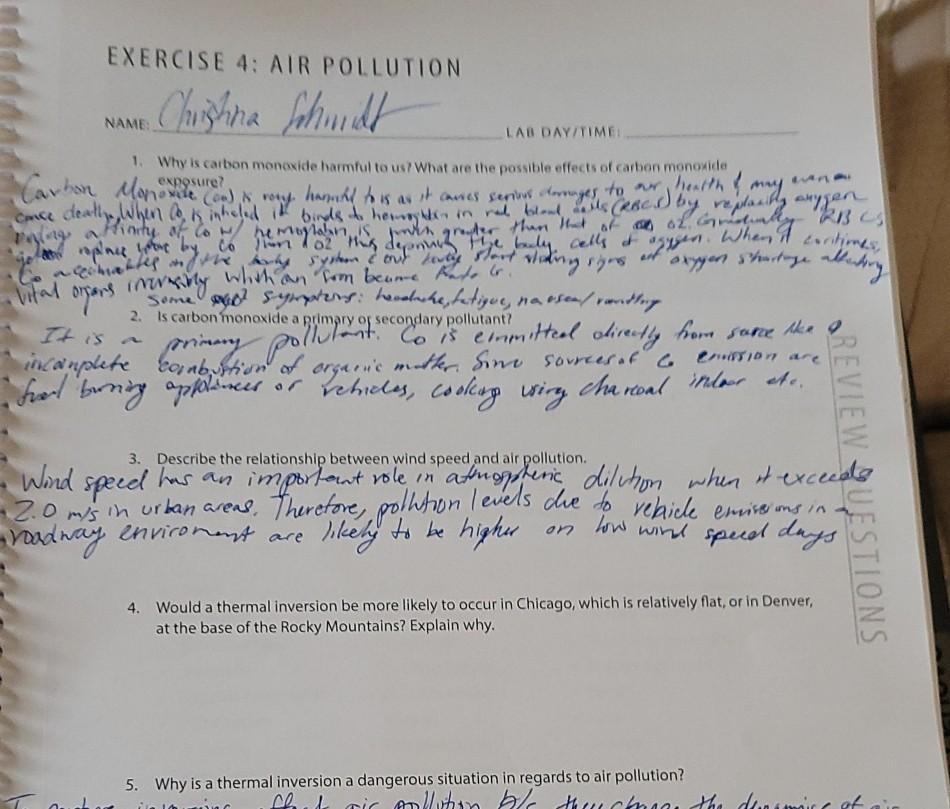 EXERCISE 4: AIR POLLUTION
NAME: Christina Schmidt LAB DAY/TIME:
1. Why is carbon monoxide harmful to us? What are the possible effects of carbon monoxide
exposure?
Carbon Monoxide (co) is very harmful to is as it causes serious damages to our health & may even
cause death. When Co is inhaled it binds to hemoglobin in red blood cells (RBCs) by replacing oxygen
affinity of Co w/ hemoglobin is much greater than that of O2. Gradually RBCs
replace by Co than O2 thus depriving the body cells of oxygen. When it continues,
Co accumulates the body system & our body start showing signs of oxygen shortage affecting
vital organs which can become
Some symptoms: headache, fatigue, nausea/vomiting
2. Is carbon monoxide a primary or secondary pollutant?
It is a primary pollutant. Co is emmitted directly from source like
incomplete combustion of organic matter. Some sources of Co emission are
fuel burning appliances or vehicles, cooking using charcoal indoor etc.
3. Describe the relationship between wind speed and air pollution.
Wind speed has an important role in atmospheric dilution when it exceeds
2.0 m/s in urban areas. Therefore, pollution levels due to vehicle emissions in a
roadway enviroment are likely to be higher on low wind speed days
REVIEW QUESTIONS
4. Would a thermal inversion be more likely to occur in Chicago, which is relatively flat, or in Denver,
at the base of the Rocky Mountains? Explain why.
5. Why is a thermal inversion a dangerous situation in regards to air pollution?
air pollution b/c they change the dynamics of air